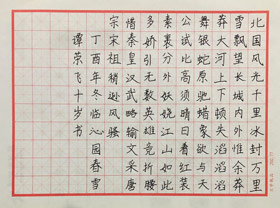 北国风光千里冰封万里
雪飘望长城内外惟余莽
莽大河上下顿失滔滔山
舞银蛇原驰蜡象欲与天
公试比高须晴日看红装
素裹分外妖娆江山如此
多娇引无数英雄竞折腰
惜秦皇汉武略输文采唐
宗宋祖稍逊风骚
丁酉年冬临沁园春雪
谭荣飞十岁书